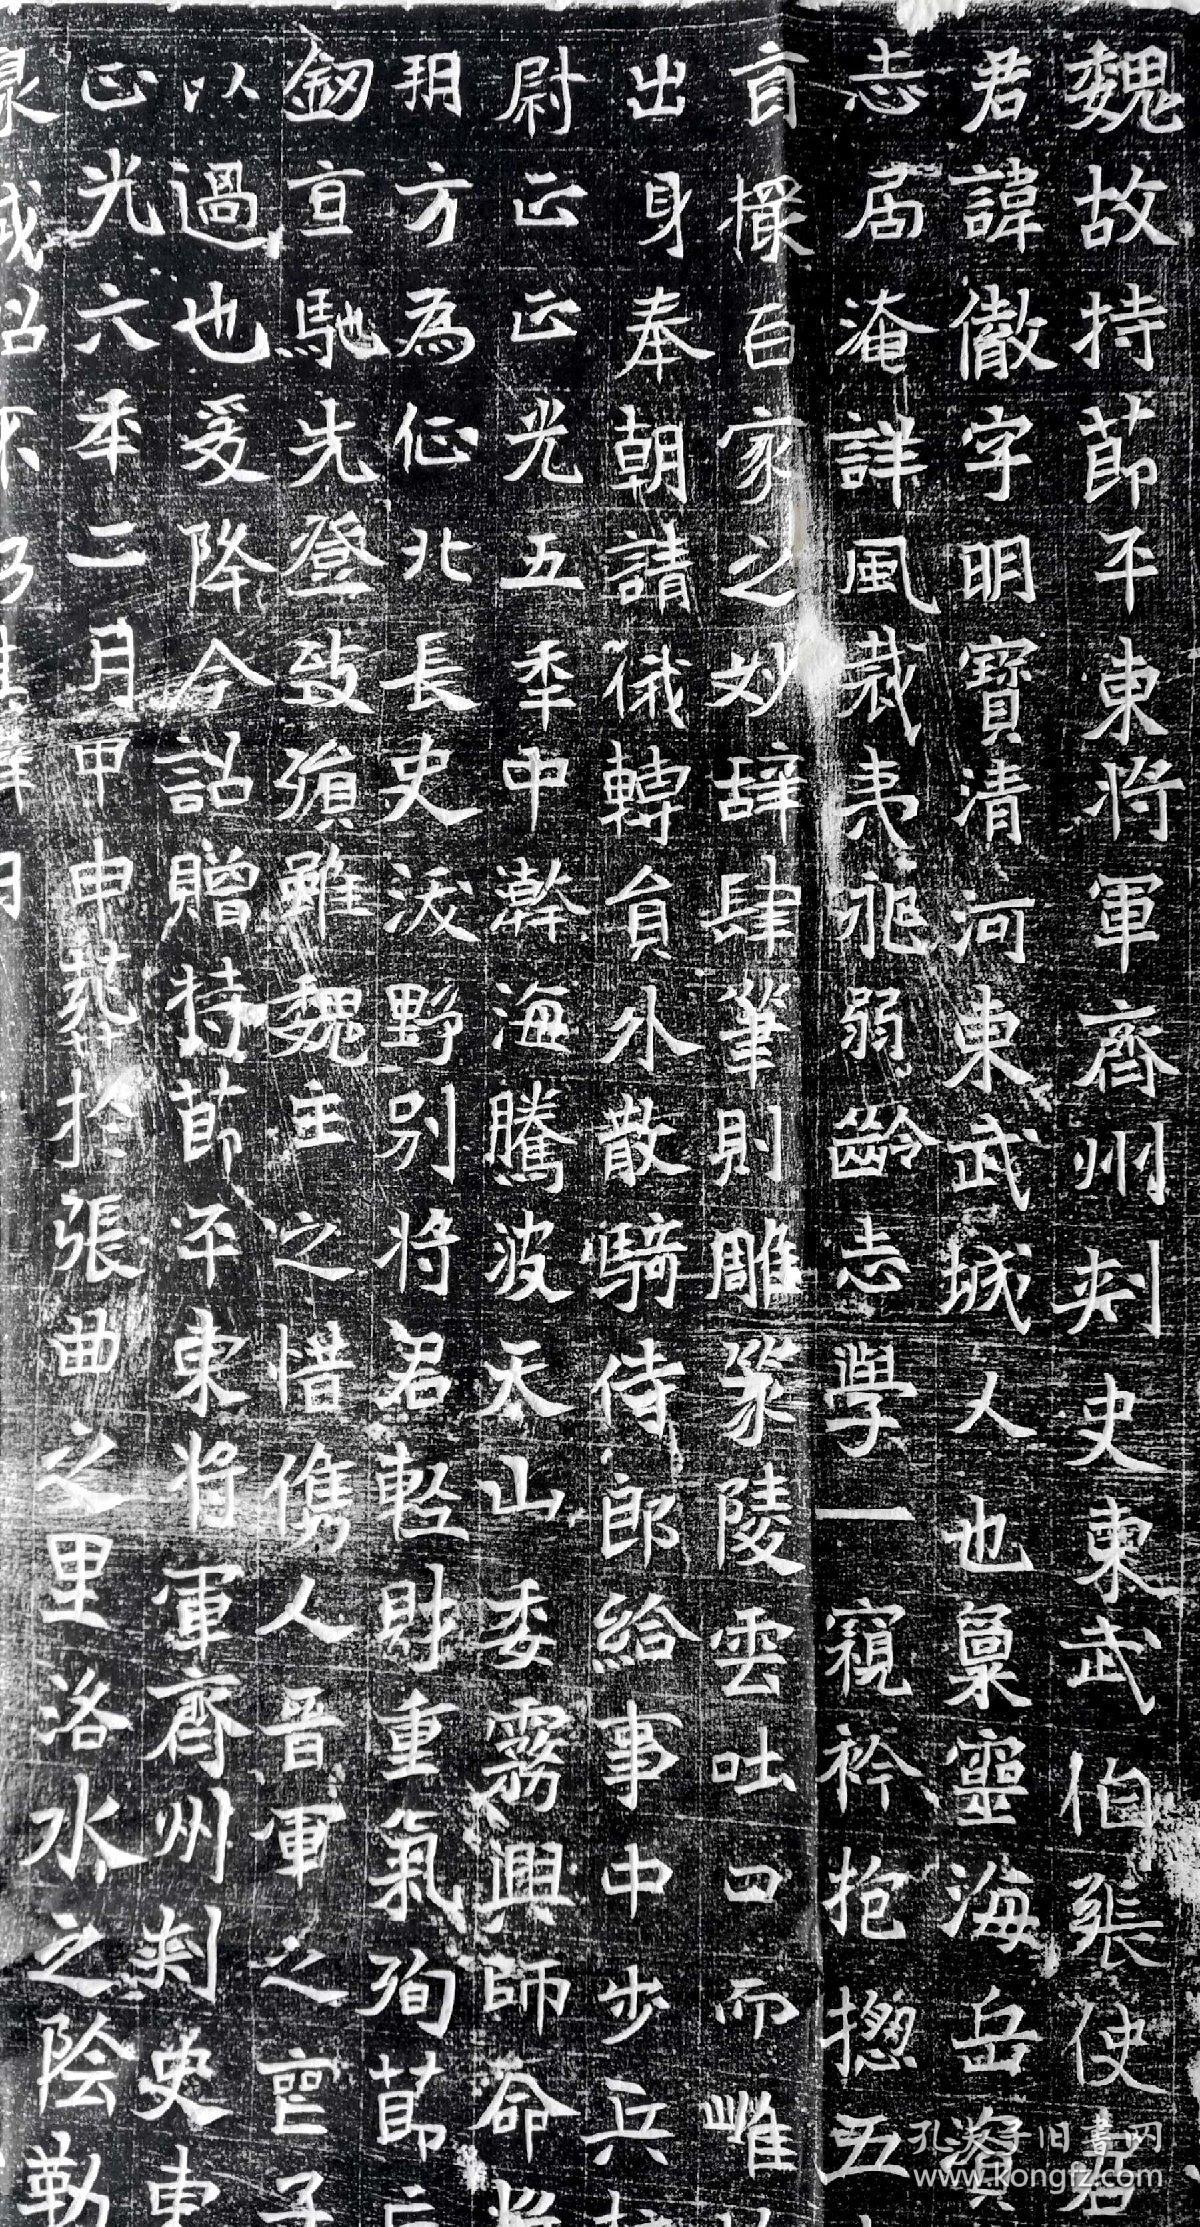 魏故持節平東將軍齊州刾史東武伯張使君
君諱儆字明寶清河東武城人也稟靈海岳資
志居淹詳風裁夷雅弱齡志學一窺衿抱揔五
百家之妙辭肆筆則雕篆陵雲吐口而
出身奉朝請俄轉貟外散騎侍郎給事中步兵
尉正正光五秊中瀚海騰波天山委霧興師命
朔方為北長史沃野別將君輕財重氣殉節亡
劒亘馳先登致殞雖魏主之惜儁人晉軍之
以過也爰降令詔贈持節平東將軍齊州刾史東
正光六秊二月甲申葬於張曲之里洛水之陰勒
孔夫子旧書网
www.kongfz.com